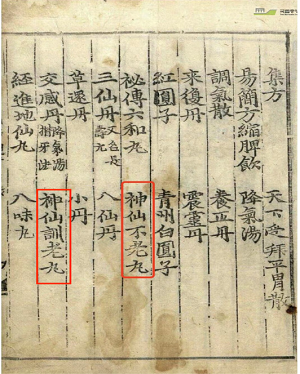 集方 天下受拜平胃散
易簡方縮脾飲 降氣湯
調氣散 養正丹
来復丹 震靈丹
紅圓子 青州白圓子
祕傳六和丸 神仙不老丸
三仙丹 又名長壽丸 八仙丹
草還丹 小丹
交感丹 降氣湯揩牙法 神仙訓老丸
經進地仙丸 八味丸